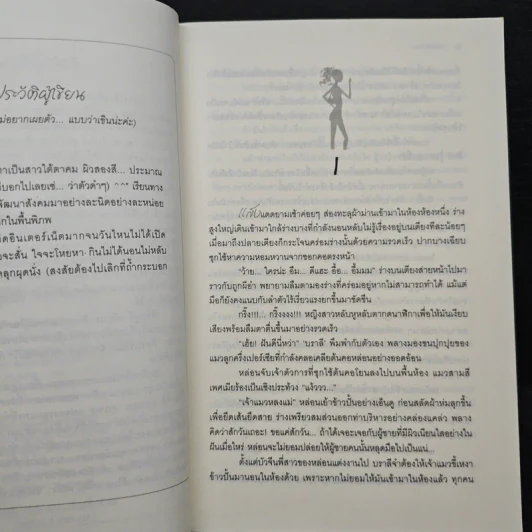 ประวัติผู้เขียน
ม่อยากเผยตัว... แบบว่าเขินน่ะค่ะ)
าเป็นสาวใต้ตาคม ผิวสองสี... ประมาณ
กบอกไปเลยเซ่... ว่าตัวดำๆ) ^^ เรียนทาง
พัฒนาสังคมมาอย่างละนิดอย่างละหน่อย
ากในพื้นพิภพ
ติดอินเตอร์เน็ตมากจนวันไหนไม่ได้เปิด
จะสั่น ใจจะโหยหา กินไม่ได้นอนไม่หลับ
ลุกผุดนั่ง (สงสัยต้องไปเลิกที่ถ้ำกระบอก
1
แสงแดดยามเช้าค่อยๆ ส่องทะลุผ้าม่านเข้ามาในห้องห้องหนึ่ง ร่าง
สูงใหญ่เดินเข้ามาใกล้ร่างบางที่กำลังนอนหลับไม่รู้เรื่องอยู่บนเตียงที่ละน้อยๆ
เมื่อมาถึงปลายเตียงก็กระโจนคร่อมร่างนั้นด้วยความรวดเร็ว ปากบางเฉียบ
ซุกไซ้หาความหอมหวานจากซอกคอตรงหน้า
“ว้าย... ใครน่ะ อืม... คืแฮะ อื้อ... อื้มมม” ร่างบนเตียงส่ายหน้าไปมา
ราวกับถูกผีอำ พยายามลืมตามองร่างที่คร่อมอยู่หากไม่สามารถทำได้ แม้แต่
มือก็ยังคงแนบกับลำตัวไร้เรี่ยวแรงยกขึ้นมาขัดขืน
กริ๊ง!!!... กริ๊งงงง!!! หญิงสาวหลับหูหลับตากดนาฬิกาเพื่อให้มันเงียบ
เสียงพร้อมลืมตาตื่นขึ้นมาอย่างรวดเร็ว
“เฮ้ย! ฝันดีนี่หว่า” ‘บราลี’ พึมพำกับตัวเอง พลางมองขนปุกปุยของ
แมวลูกครึ่งเปอร์เซียที่กำลังคลอเคลียต้นคอหล่อนอย่างออดอ้อน
หล่อนจับเจ้าตัวการที่ซุกไซ้ต้นคอโยนลงไปบนพื้นห้อง แมวสามสี
เพศเมียร้องเป็นเชิงประท้วง “แง้ววว...”
“เจ้าแมวหลงแม่” หล่อนเย้าข้าวปั้นอย่างเอ็นดู ก่อนสลัดผ้าห่มลุกขึ้น
เพื่อยืดเส้นยืดสาย ร่างเพรียวสมส่วนออกท่าบริหารอย่างคล่องแคล่ว พลาง
คิดว่าสักวันเถอะ! ขอแค่สักวัน... ถ้าได้เจอะเจอกับผู้ชายที่มีผิวเนียนใสอย่างใน
ฝันเมื่อไหร่ หล่อนจะไม่ยอมปล่อยให้ผู้ชายคนนั้นหลุดมือไปเป็นแน่...
ตั้งแต่บัวจีนพี่สาวของหล่อนแต่งงานไป บราลีจำต้องให้เจ้าแมวขี้เหงา
ข้าวปั้นมานอนในห้องด้วย เพราะหากไม่ยอมให้มันเข้ามาในห้องแล้ว ทุกคน